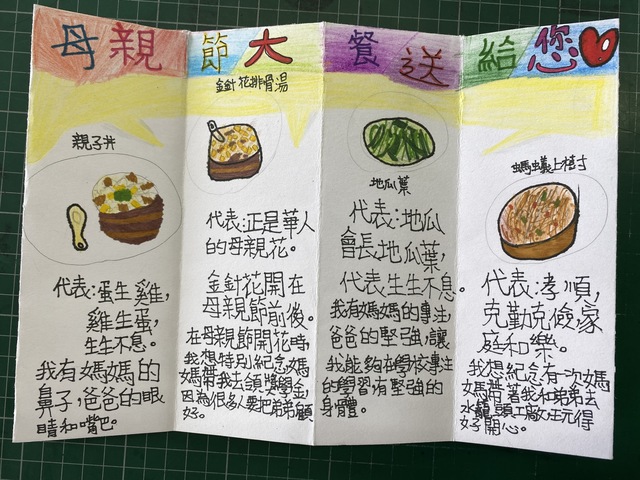 母親節大餐送給您
親子丼
代表:蛋生雞,
雞生蛋,
生生不息。
我有媽媽的
鼻子,爸爸的眼
睛和嘴巴。
金針花排骨湯
代表:正是華人
的母親花。
金針花開在
母親節前後。
在母親節開花時,
我想特別紀念媽
媽帶我去領獎學金,
因為很多人要把弟弟顧
好。
地瓜葉
代表:地瓜
會長地瓜葉,
代表生生不息。
我有媽媽的專注,
爸爸的堅強,讓
我能夠在學校專注
的學習,有堅強的
身體。
螞蟻上樹
代表:孝順,
克勤克儉家
庭和樂。
我想紀念有一次媽
媽帶著我和弟弟去
水龍頭工廠玩得
好開心。